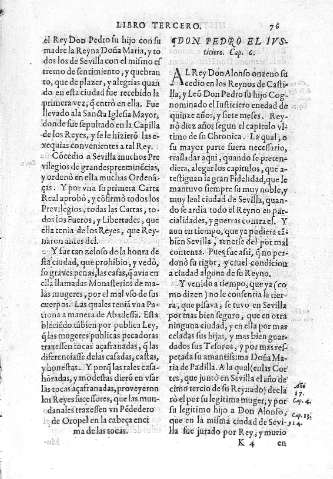 LIBRO TERCERO. 76
el Rey Don Pedro su hijo con su
madre la Reyna Doña Maria, y to
dos los de Sevilla con el mismo es
tremo de sentimiento, y quebran
to, que de plazer, y alegrias quan
do en esta ciudad fue recibido la
primera vez, q̃ entró en ella. Fue
llevado ala Sancta Iglesia Mayor,
donde fue sepultado en la Capilla
de los Reyes, y se le hizierõ las es-
xequias convenientes a tal Rey.
Cõcedio a Sevilla muchos Pre
vilegios de grandes preeminẽcias,
y ordenó en ella muchas Ordenã-
ças. Y por una su primera Carta
Real aprobó, y cõfirmó todos los
Previlegios, todas las Cartas, to-
dos los Fueros, y Libertades, que
ella tenia de los Reyes, que Rey-
naron antes del.
Y fue tan zeloso de la honra de
esta ciudad, que prohibio, y vedó,
so graves penas, las casas, q̃ avia en
ella llamadas Monasterios de ma-
las mugeres, por el mal vso de sus
cuerpos. Las quales tenia vna Pa-
trona a manera de Abadessa. Esta
blecido tãbien por publica Ley,
q̃ las mugeres publicas pecadoras
traxessen tocas açafranadas, q̃ las
diferenciasse de las casadas, castas,
y honestas. Y porq̃ las tales casa-
hõradas, y modestas dierõ en usar
las tocas açafranadas, proveyeron
los Reyes sucessores, que las mun-
danales traxessen vn Pẽdedero
de Oropel en la cabeça enci
ma de las tocas.
DON PEDRO EL IVS-
ticiero. Cap. 6.
AL Rey Don Alonso onzeno su
cedio en los Reynos de Casti-
lla, y Leõ Don Pedro su hijo Cog-
nominado el Iusticiero en edad de
quinze años, y siete meses. Reynó
diez y nueve años segun el capitulo vl-
timo de su Chronica. La qual, o
su mayor parte fuera necessario,
trasladar aqui, quando se preten-
diera, alegar los capitulos, que a-
testiguan la gran Fidelidad, que le
mantuvo siempre su muy noble, y
muy leal ciudad de Sevilla, quan-
do se ardia todo el Reyno en par-
cialidades, y guerras contra el. Y
aun en tiempo, que ya pudiera tã
bien Sevilla, tenerse del por mal
contenta. Pues fue assi, q̃ no per-
donó su rigor, y cruel condicion
a ciudad alguna de su Reyno.
Y venido a tiempo, que ya (co
mo dizen) no le consentia la tier-
ra, que pisava, se tuvo en Sevilla
por mas bien seguro, que en otra
ninguna ciudad, y en ella por mas
celadas sus hijas, y mas bien guar-
dados sus Tesoros, y por mas res-
petada su amantissima Doña Ma-
ria de Padilla. A la qual (en las Cor
tes, que juntó en Sevilla el año de
cimo tercio de su Reynado) decla
ró el por su legitima muger, y por
su legitimo hijo a Don Alonso,
que en la misma ciudad de Sevi-
lla fue jurado por Rey, y murio
Año
Cap. 4.
K 4 en